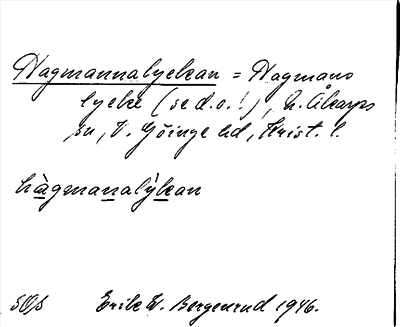 Hagmannalyckan = Hagmans
lycke (se d.o.!), N. Åkarps
sn, V. Göinge hd, Krist. l.
hàgmanalỳkan
Erik W. Bergenrud 1946.